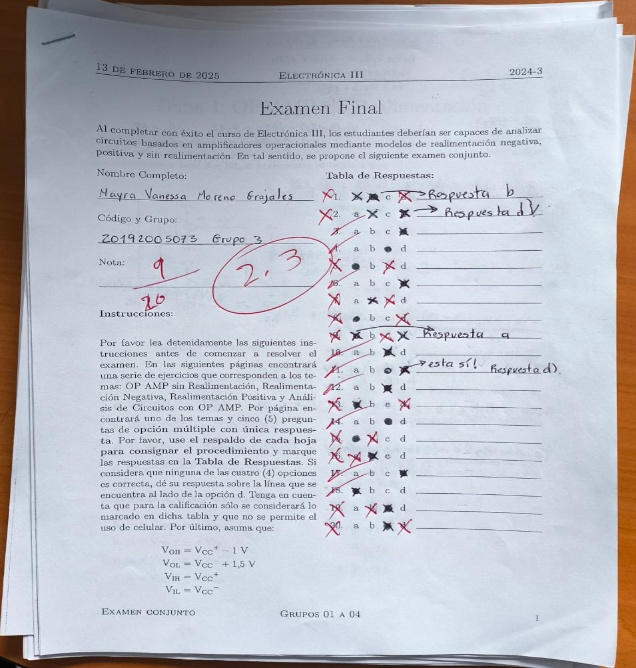 13 DE FEBRERO DE 2025 ELECTRÓNICA III 2024-3
Examen Final
Al completar con éxito el curso de Electrónica III, los estudiantes deberían ser capaces de analizar
circuitos basados en amplificadores operacionales mediante modelos de realimentación negativa,
positiva y sin realimentación. En tal sentido, se propone el siguiente examen conjunto.
Nombre Completo:
Mayra Vanessa Moreno Grajales
Código y Grupo:
20192005073 Grupo 3
Nota:
9
20
2.3
Instrucciones:
Por favor lea detenidamente las siguientes ins-
trucciones antes de comenzar a resolver el
examen. En las siguientes páginas encontrará
una serie de ejercicios que corresponden a los te-
mas: OP AMP sin Realimentación, Realimenta-
ción Negativa, Realimentación Positiva y Análi-
sis de Circuitos con OP AMP. Por página en-
contrará uno de los temas y cinco (5) pregun-
tas de opción múltiple con única respues-
ta. Por favor, use el respaldo de cada hoja
para consignar el procedimiento y marque
las respuestas en la Tabla de Respuestas. Si
considera que ninguna de las cuatro (4) opciones
es correcta, dé su respuesta sobre la línea que se
encuentra al lado de la opción d. Tenga en cuen-
ta que para la calificación sólo se considerará lo
marcado en dicha tabla y que no se permite el
uso de celular. Por último, asuma que:
V_OH = V_CC⁺ − 1 V
V_OL = V_CC⁻ + 1,5 V
V_IH = V_CC⁺
V_IL = V_CC⁻
Tabla de Respuestas:
1. c Respuesta b
2. a c Respuesta d
3. a b c
4. a b d
b d
a b c
a
c
Respuesta a
10. a b d
11. a b esta sí! Respuesta d)
12. a b d
b c
14. a b d
c d
c d
17. a b c
18. b c d
a d
20. a b
EXAMEN CONJUNTO GRUPOS 01 A 04 1